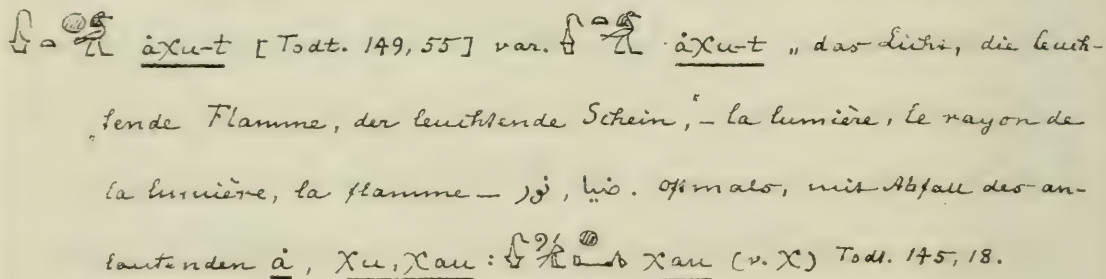 åχu-t [Todt. 149, 55] var. åχu-t „das Licht, die leuch-
tende Flamme, der leuchtende Schein," – la lumière, le rayon de
la lumière, la flamme – نور, ضيا. Oftmals, mit Abfall des an-
lautenden å, χu, χau: χau (v. χ) Todt. 145, 18.